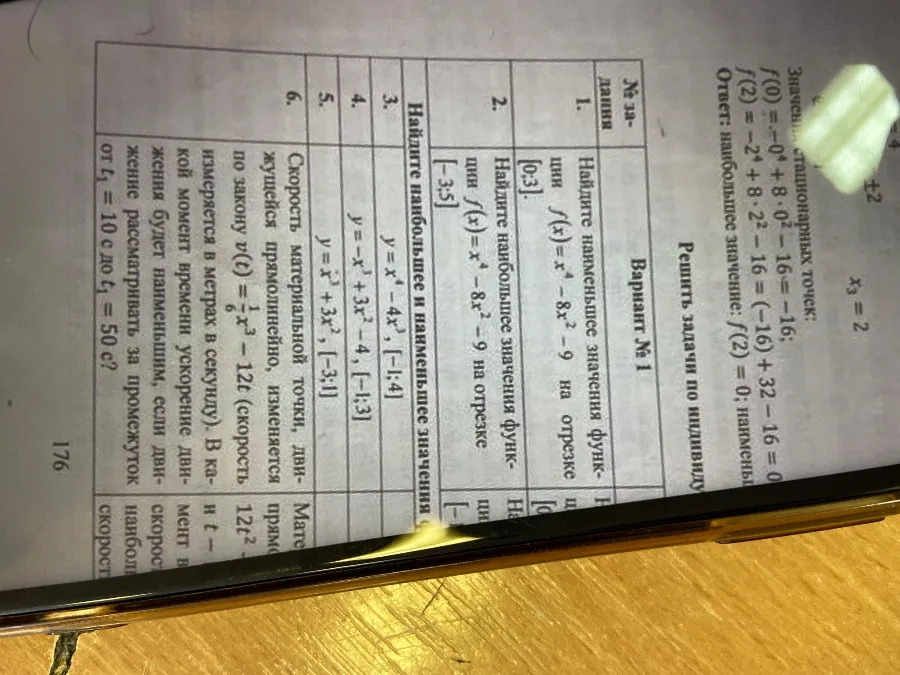 ±2
x₃ = 2
стационарных точек:
f(0) = −0⁴ + 8 · 0² − 16 = −16;
f(2) = −2⁴ + 8 · 2² − 16 = (−16) + 32 − 16 = 0
Ответ: наибольшее значение: f(2) = 0; наимень
Решить задачи по индивиду
№ за-
дания
Вариант № 1
1.
Найдите наименьшее значения функ-
ции f(x) = x⁴ − 8x² − 9 на отрезке
[0;3].
2.
Найдите наибольшее значения функ-
ции f(x) = x⁴ − 8x² − 9 на отрезке
[−3;5]
Найдите наибольшее и наименьшее значения
3.
y = x⁴ − 4x³, [−1;4]
4.
y = −x³ + 3x² − 4, [−1;3]
5.
y = x³ + 3x², [−3;1]
6.
Скорость материальной точки, дви-
жущейся прямолинейно, изменяется
по закону v(t) = 1/6 x³ − 12t (скорость
измеряется в метрах в секунду). В ка-
кой момент времени ускорение дви-
жения будет наименьшим, если дви-
жение рассматривать за промежуток
от t₁ = 10 с до t₁ = 50 с?
Мате
прямо
12t² −
и t −
мент в
скорос
наибол
скорост
176